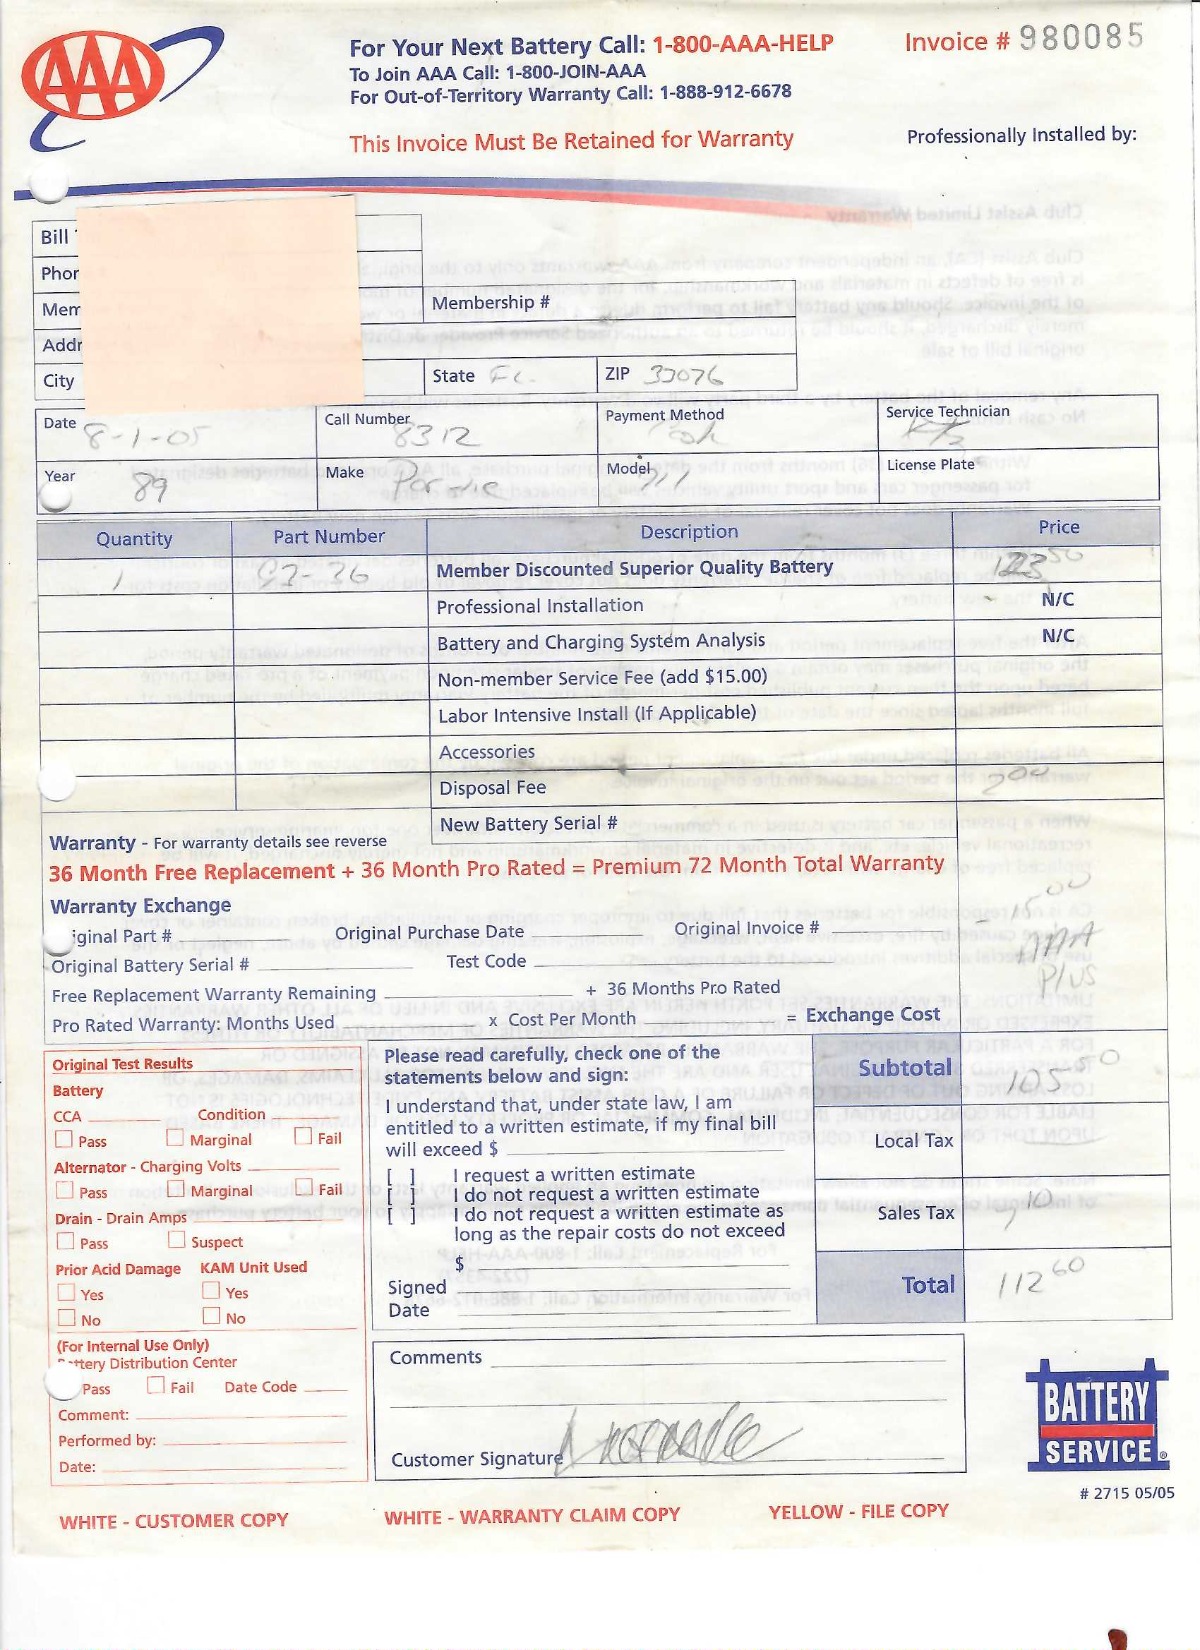 AAA
For Your Next Battery Call: 1-800-AAA-HELP
To Join AAA Call: 1-800-JOIN-AAA
For Out-of-Territory Warranty Call: 1-888-912-6678
This Invoice Must Be Retained for Warranty
Invoice # 980085
Professionally Installed by:
Bill
Phor
Mem
Membership #
Addr
City State FL. ZIP 33076
Date 8-1-05 Call Number 8312 Payment Method Service Technician
Year 89 Make Porsche Model 911 License Plate
Quantity Part Number Description Price
1 Member Discounted Superior Quality Battery 123 50
Professional Installation N/C
Battery and Charging System Analysis N/C
Non-member Service Fee (add $15.00)
Labor Intensive Install (If Applicable)
Accessories
Disposal Fee
New Battery Serial #
Warranty - For warranty details see reverse
36 Month Free Replacement + 36 Month Pro Rated = Premium 72 Month Total Warranty
Warranty Exchange
iginal Part # Original Purchase Date Original Invoice #
- 15 00
AAA
Plus
Original Battery Serial # Test Code
Free Replacement Warranty Remaining + 36 Months Pro Rated
Pro Rated Warranty: Months Used x Cost Per Month = Exchange Cost
Original Test Results
Battery
CCA Condition
Pass Marginal Fail
Alternator - Charging Volts
Pass Marginal Fail
Drain - Drain Amps
Pass Suspect
Prior Acid Damage KAM Unit Used
Yes Yes
No No
(For Internal Use Only)
ttery Distribution Center
Pass Fail Date Code
Comment:
Performed by:
Date:
Please read carefully, check one of the
statements below and sign:
I understand that, under state law, I am
entitled to a written estimate, if my final bill
will exceed $
[ ] I request a written estimate
[ ] I do not request a written estimate
[ ] I do not request a written estimate as
long as the repair costs do not exceed
$
Signed
Date
Subtotal 105 50
Local Tax
Sales Tax 7 10
Total 112 60
Comments
Customer Signature
BATTERY
SERVICE®
# 2715 05/05
WHITE - CUSTOMER COPY WHITE - WARRANTY CLAIM COPY YELLOW - FILE COPY